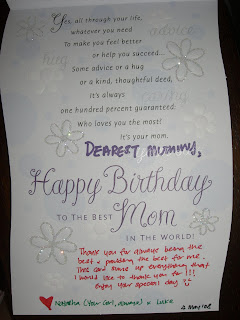 Yes, all through your life,
whatever you need
To make you feel better
or help you succeed...
Some advice or a hug
or a kind, thoughtful deed,
It's always
one hundred percent guaranteed
Who loves you the most!
It's your mom.
DEAREST MUMMY,
Happy Birthday
TO THE BEST
Mom
IN THE WORLD!
Thank you for always being the
best & providing the best for me.
This card sums up everything that
I would like to thank you for!!!
enjoy your special day
Natasha (Your Girl, always) & Luke